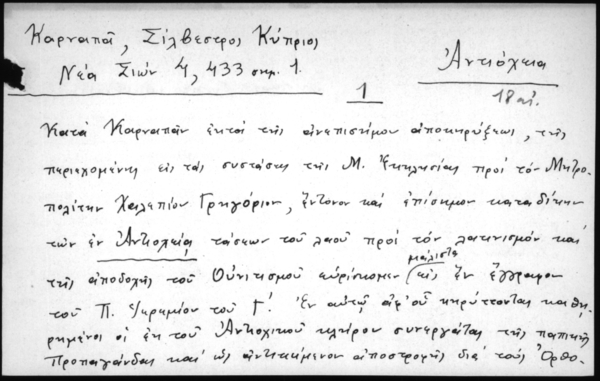 Καρναπᾶ, Σίλβεστρος Κύπριος
Ἀντιόχεια
Νέα Σιών 4, 433 σημ. 1.
1
18 αἰ.
Κατὰ Καρναπᾶν ἐκτὸς τῆς ἀνεπισήμου ἀποκηρύξεως, τῆς
περιεχομένης εἰς τὰς συστάσεις τῆς Μ. Ἐκκλησίας πρὸς τὸν Μητρο-
πολίτην Χαλεπίου Γρηγόριον, ἔντονον καὶ ἐπίσημον καταδίκην
τῶν ἐν Ἀντιοχείᾳ τάσεων τοῦ λαοῦ πρὸς τὸν λατινισμὸν καὶ
τῆς ἀποδοχῆς τοῦ Οὐνιτισμοῦ εὑρίσκομεν μάλιστα εἰς ἓν ἔγγραφον
τοῦ Π. Ἱερεμίου τοῦ Γ΄. Ἐν αὐτῷ ἀφ' οὗ κηρύττονται καθῃ-
ρημένοι οἱ ἐκ τοῦ Ἀντιοχικοῦ κλήρου συνεργάται τῆς παπικῆς
Προπαγάνδας καὶ ὡς ἀντικείμενον ἀποστροφῆς διὰ τοὺς Ὀρθο-